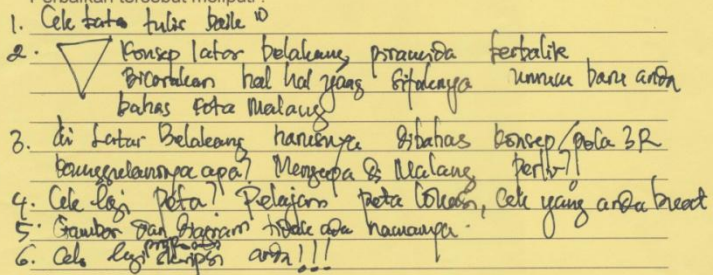 Perbaikan tersebut meliputi :
1. Cek tata tulis baik"
2. Konsep lator belakang piramida terbalik
Bicarakan hal hal yang sifatnya umum baru anda
bahas kota Malang
3. di Latar Belakang harusnya dibahas konsep/pola 3R
apa? Mengapa di Malang perlu?!
4. Cek lagi Peta? Pelajari peta lokasi, cek yang anda buat
5. Gambar dan diagram tidak ada namanya.
6. Cek lagi skripsi anda!!!